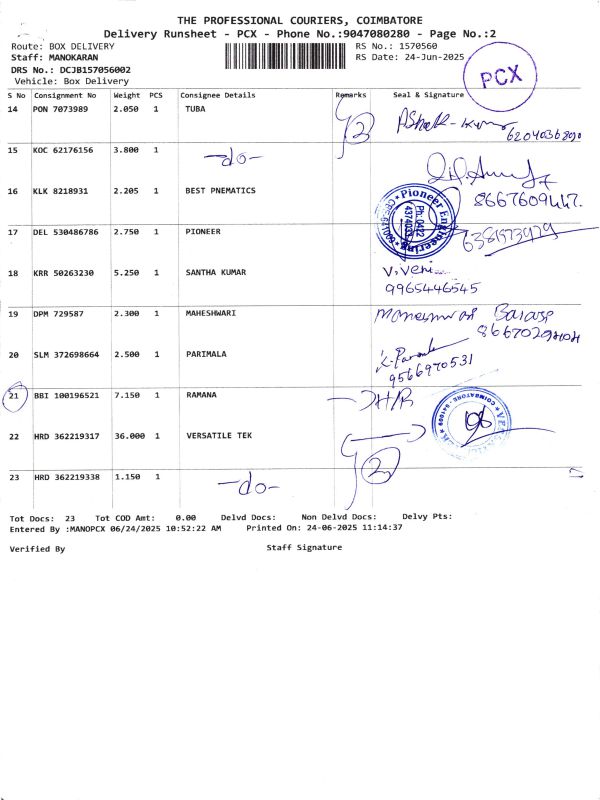 THE PROFESSIONAL COURIERS, COIMBATORE
Delivery Runsheet - PCX - Phone No.:9047080280 - Page No.:2
Route: BOX DELIVERY RS No.: 1570560
Staff: MANOKARAN RS Date: 24-Jun-2025
DRS No.: DCJB157056002
Vehicle: Box Delivery
PCX
S No Consignment No Weight PCS Consignee Details Remarks Seal & Signature
14 PON 7073989 2.050 1 TUBA 2
15 KOC 62176156 3.800 1 -do-
16 KLK 8218931 2.205 1 BEST PNEMATICS
8667609447.
Pioneer Engineering
17 DEL 530486786 2.750 1 PIONEER 6381573979
18 KRR 50263230 5.250 1 SANTHA KUMAR
9965446545
19 DPM 729587 2.300 1 MAHESHWARI
20 SLM 372698664 2.500 1 PARIMALA
9566970531
21 BBI 100196521 7.150 1 RAMANA
22 HRD 362219317 36.000 1 VERSATILE TEK 2
23 HRD 362219338 1.150 1 -do-
Tot Docs: 23 Tot COD Amt: 0.00 Delvd Docs: Non Delvd Docs: Delvy Pts:
Entered By :MANOPCX 06/24/2025 10:52:22 AM Printed On: 24-06-2025 11:14:37
Verified By Staff Signature